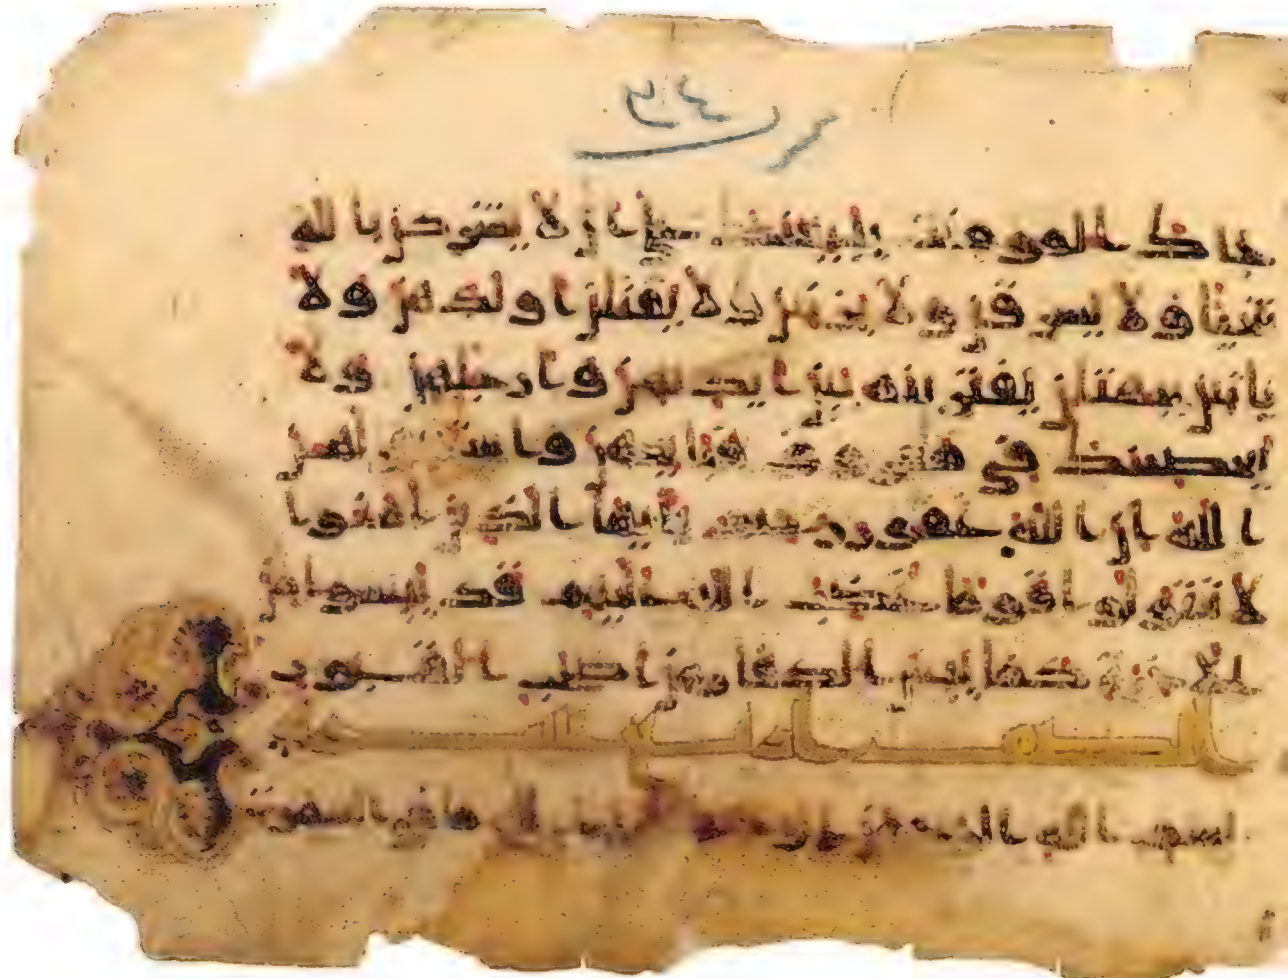 ٣٤
جاك المومنت يبايعنك على ان لا يشركن بالله
شيئا ولا يسرقن ولا يزنين ولا يقتلن اولدهن ولا
ياتين ببهتان يفترينه بين ايديهن وارجلهن ولا
يعصينك في معروف فبايعهن واستغفر لهن
الله ان الله غفور رحيم يايها الذين امنوا
لا تتولوا قوما غضب الله عليهم قد يئسوا من
الاخرة كما يئس الكفار من اصحب القبور
الصف
بسم الله الرحمن الرحيم سبح لله ما في السموت